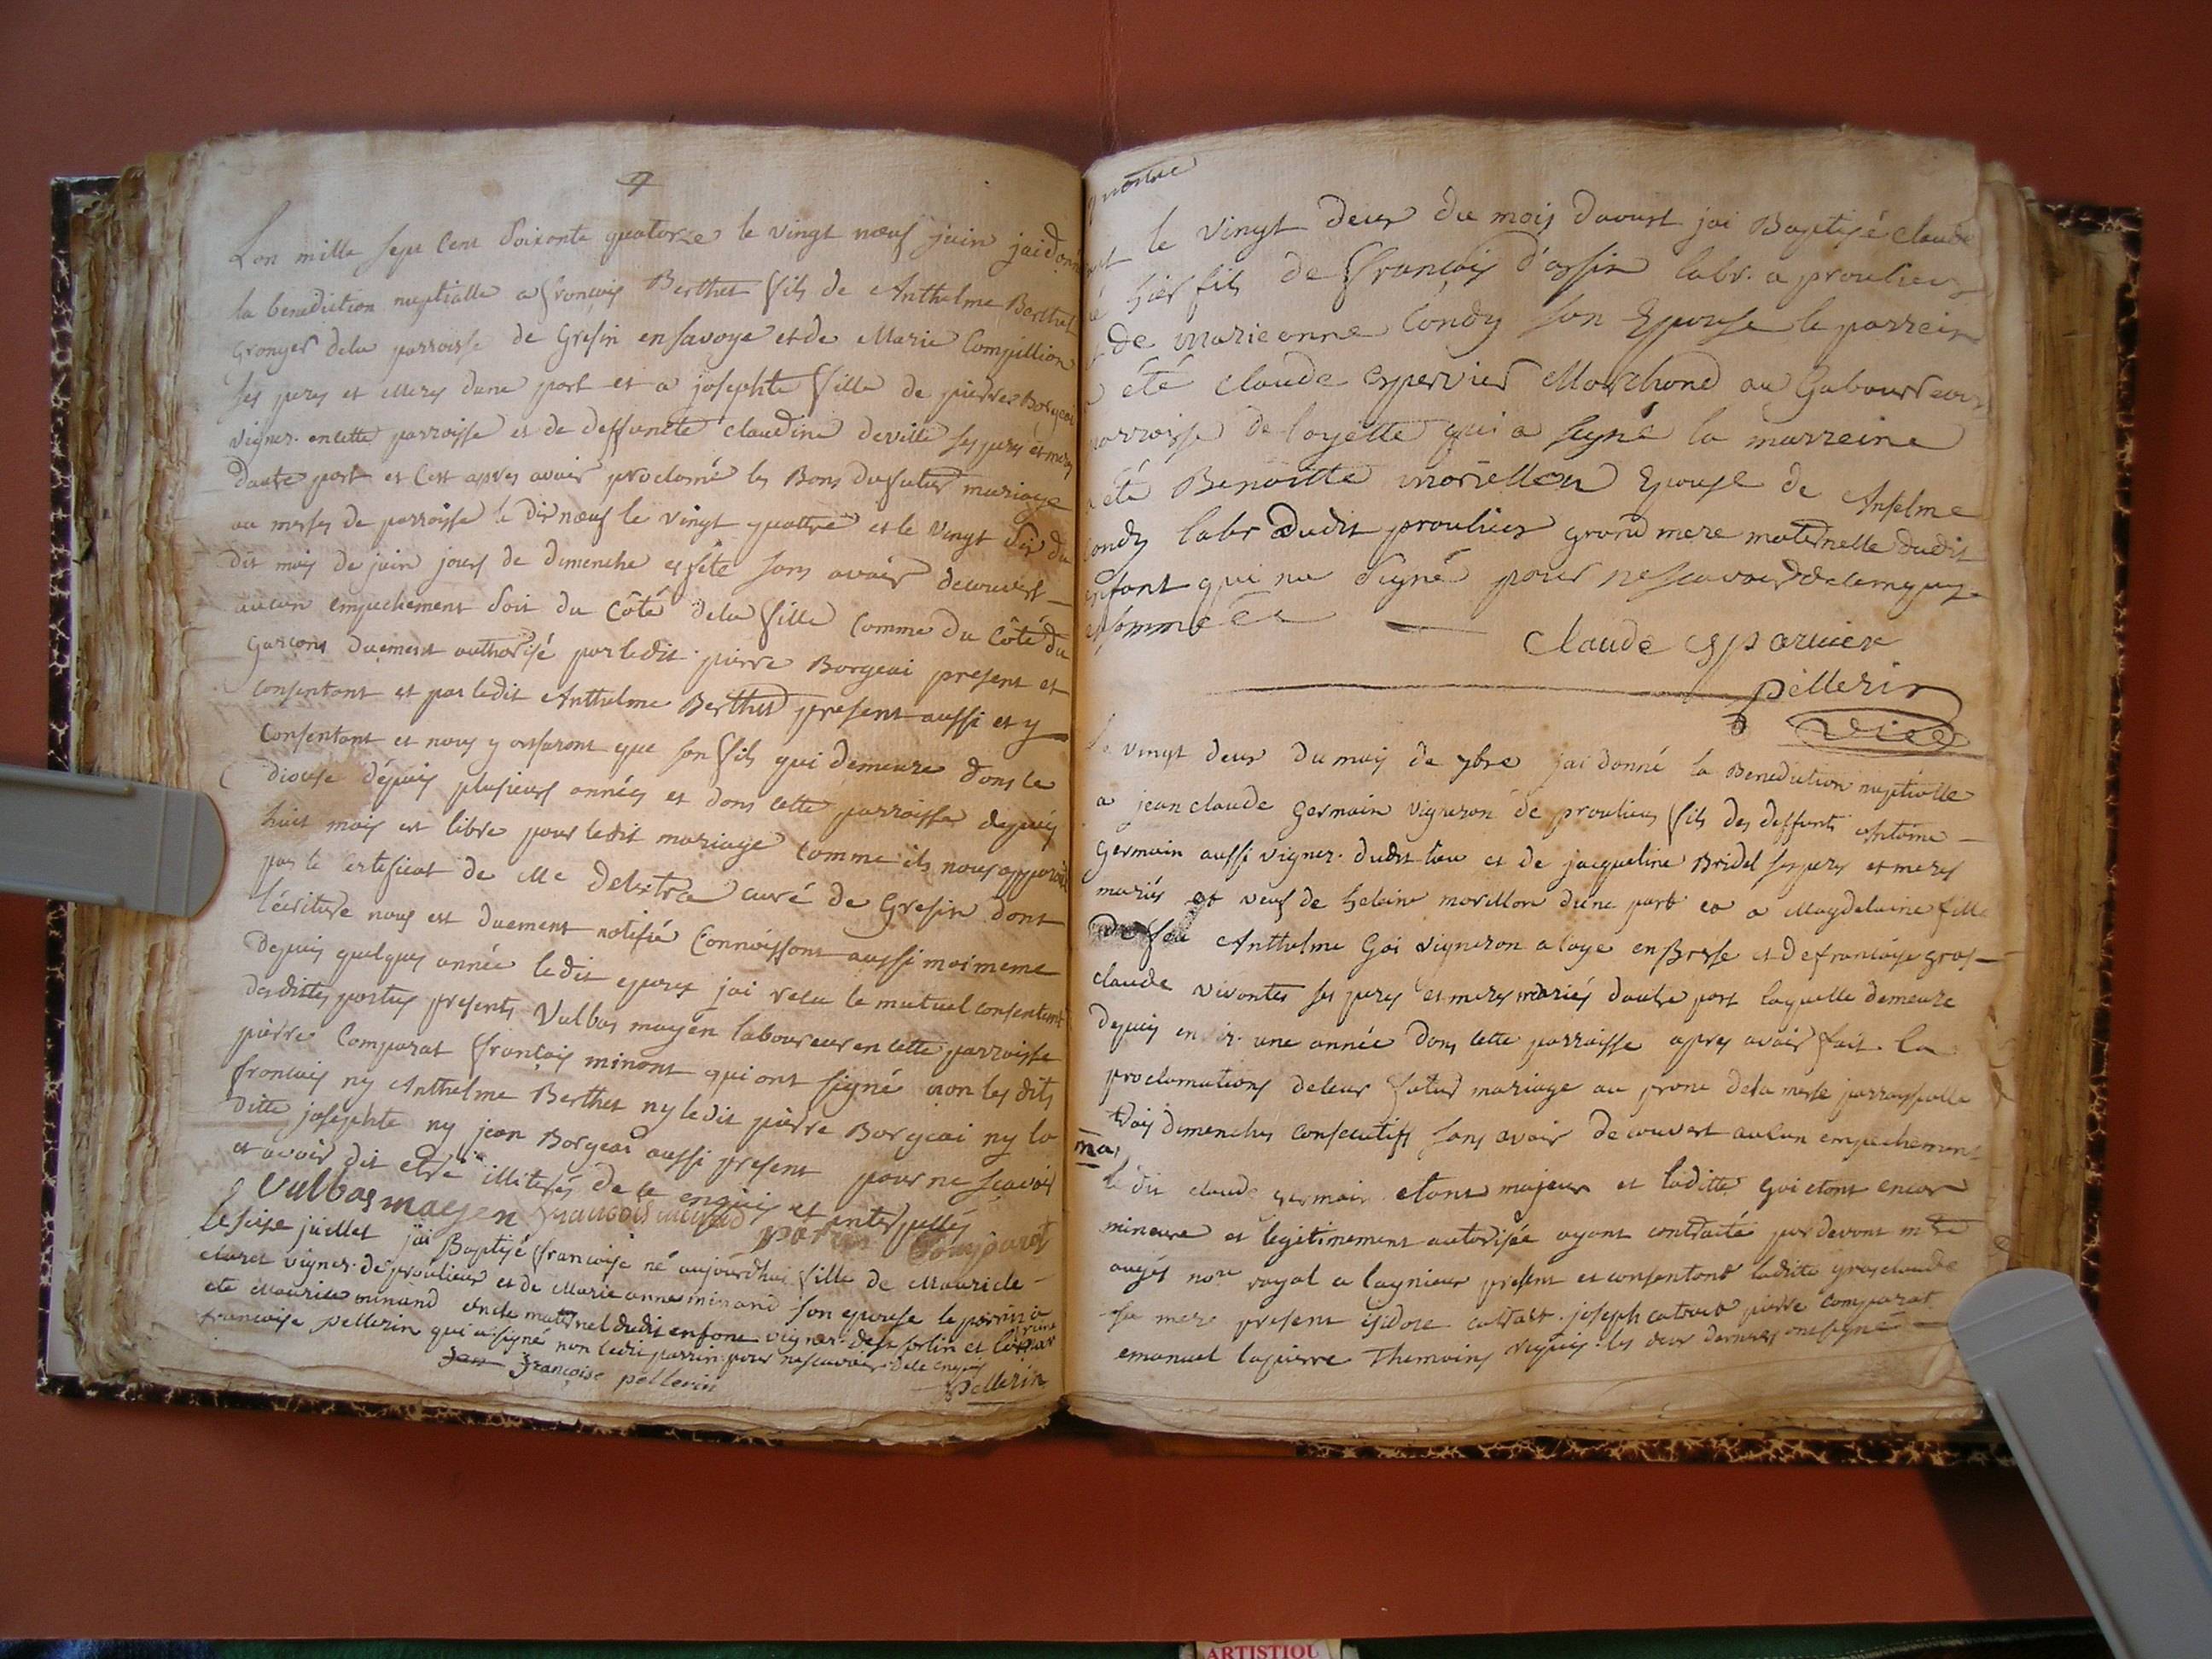 4
Lon mille sept cent soixante quatorze le vingt nœuf juin jai donné
la benediction nuptialle a francois Berthet fils de Anthelme Berthet
Granger dela parroisse de Gresin en savoye et de Marie Compillion
ses peres et meres dune part et a josephte fille de pierre Borgeai
vigner. en cette parroisse et de deffuncte claudine deville ses peres et meres
dautre part et cest apres avoir proclamé les Bans du futur mariage
au messes de parroisse le dix nœuf le vingt quattre et le vingt six du
dit mois de juin jours de dimenche et fête sans avoir decouvert
aucun empechement soit du côté dela fille comme du côté du
garcons duement authorisé par ledit pierre Borgeai present et
consentant et par ledit Anthelme Berthet present aussi et y
consentant et nous y assurant que son fils qui demeure dans le
diocese dépuis plusieurs années et dans cette parroisse depuis
huit mois est libre pour ledit mariage comme ils nous apparoit
par le certeficat de Mr curé de Gresin dont
lécriture nous est duement notifié connoissant aussi moi meme
depuis quelques année ledit epoux jai recu le mutuel consentemt
desdittes parties presents Vulbas mayén laboureur en cette parroisse
pierre Comparat francois minant qui ont signé non les dits
francois ny Anthelme Berthet ny ledit pierre Borgeai ny la
ditte josephte ny jean Borgeai aussi present pour ne scavoir
et avoir dit etre illiterés de ce enquis et interpellés
Vulbas mayen francois minand pierre Comparat
le seize juillet jäi Baptisé francoise né aujourdhui fille de Mauricle
claret vigner. de proulieux et de Marie anne minand son epouse le parrin a
ete Maurice minand oncle maternel dudit enfant vigner. de st sorlin et la marrine
francoise pellerin qui a signé non ledit parrin pour ne scavoir de ce enquis
françoise pellerin
pellerin
le vingt deux du mois daoust jai Baptisé claude
hier fils de francois d'assin labr. a proulieux
de marieanne Condy son Epouse le parrein
été claude Espervier Marchand au Gabourreaux
parroisse de loyette qui a signé la marreine
été Benoitte morellon Epouse de Anselme
Condy labr dudit proulieux grand mere maternelle dudit
enfant qui na signé pour ne scavoir de ce enquis
et sommée
claude esparvier
pellerin
vice
le vingt deux du mois de 7bre jai donné la Benediction nuptialle
a jean claude germain vigneron de proulieux fils des deffunts Antoine
germain aussi vigner. dudit lieu et de jacqueline Bridel ses peres et meres
mariés et veuf de helaine morellon dune part et a Magdelaine fille
de feu Anthelme Goi vigneron a loye en Bresse et de francoise gros
claude vivantes ses peres et meres mariés dautre part laquelle demeure
depuis envir. une année dans cette parroisse apres avoir fait la
proclamations de leur futur mariage au prone dela messe parroissialle
trois dimenches consecutifs sans avoir decouvert aucun empechement
ma
le dit claude germain etant majeur et laditte Goi etant encor
mineure et legitimement autorisée ayant contracté par devant mtre
augés nore royal a lagnieux present et consentant ladite grosclaude
sa mere present isidore joseph pierre Comparat
emanuel lapierre Themoins requis les deux derniers ont signé